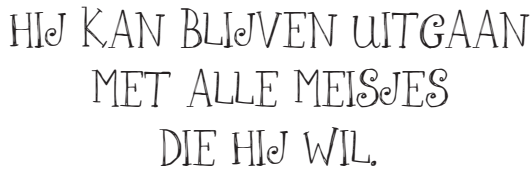 HIJ KAN BLIJVEN UITGAAN
MET ALLE MEISJES
DIE HIJ WIL.